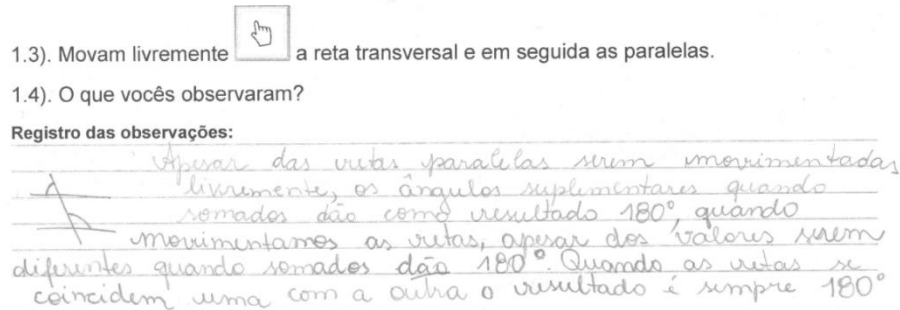 1.3). Movam livremente a reta transversal e em seguida as paralelas.
1.4). O que vocês observaram?
Registro das observações:
Apesar das retas paralelas serem movimentadas
livremente, os ângulos suplementares quando
somados dão como resultado 180°, quando
movimentamos as retas, apesar dos valores serem
diferentes quando somados dão 180°. Quando as retas se
coincidem uma com a outra o resultado é sempre 180°